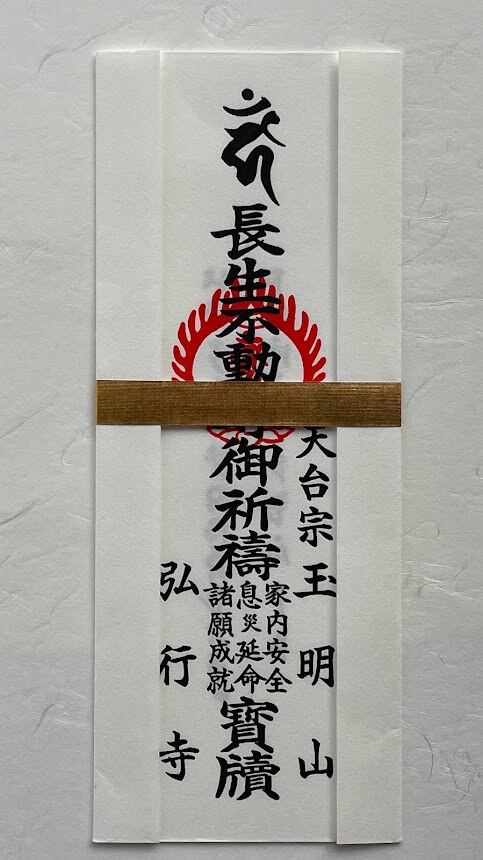 天台宗 玉明山
長生不動
御祈禱
家内安全
息災延命
諸願成就
寶牘
弘行寺